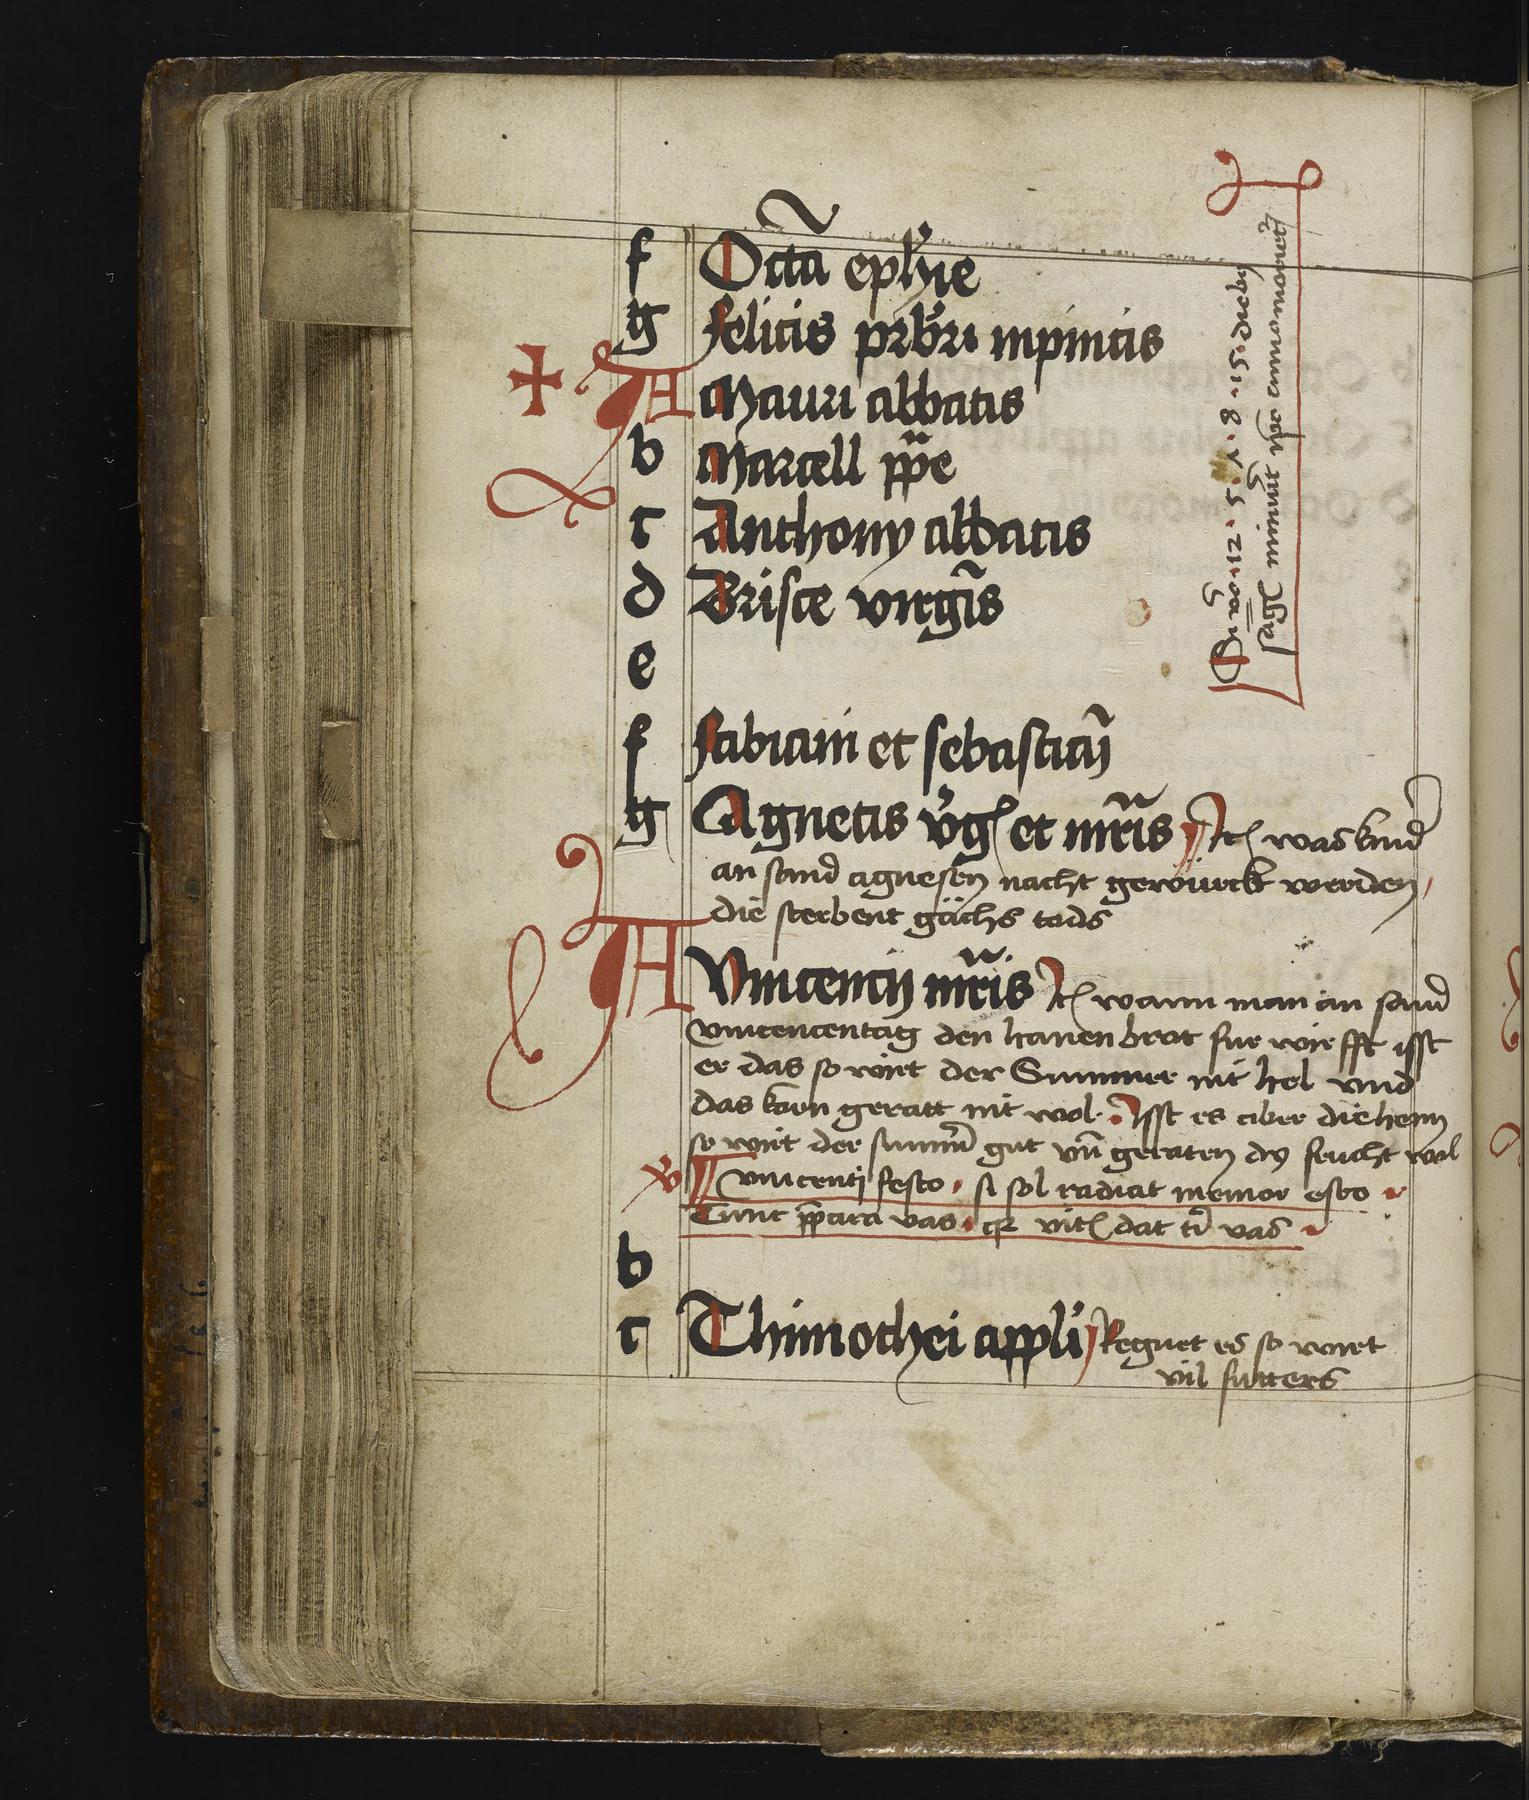 f Octa ephie
g felicis prbri inpincis
A Mauri abbatis
b Marcell ppe
c Anthony abbatis
d Prisce virgis
e
f fabiani et sebastiani
g Agnetis vgl et mris It was kind
an sand agnesen nacht gewürckt werden
die sterbent gächs tods
A Vincencij mris It wann man an sand
vincencentag den hanen brot fur wirfft isst
er das so wirt der Summer nit hel vnd
das korn geratt nit wol. Isst es aber die henn
so wirt der summ gut vn geraten dy frucht wol
vincenti festo, si sol radiat memor esto
Tunc ppara vas. qr vit dat ti vas
b
c Thimothei appli Regnet es so wirt
vil futters
12. 5. 8. 15. dieb
minuit anno